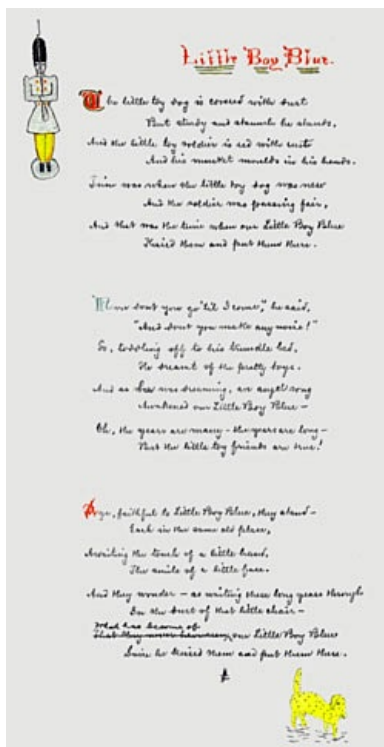 Little Boy Blue.
The little toy dog is covered with dust
But sturdy and staunch he stands,
And the little toy soldier is red with rust
And his musket moulds in his hands.
Time was when the little toy dog was new
And the soldier was passing fair,
And that was the time when our Little Boy Blue
Kissed them and put them there.
"Now don't you go 'til I come," he said,
"And don't you make any noise!"
So, toddling off to his trundle bed,
He dreamt of the pretty toys.
And as he was dreaming, an angel song
Awakened our Little Boy Blue —
Oh, the years are many — the years are long —
But the little toy friends are true!
Aye, faithful to Little Boy Blue, they stand —
Each in the same old place,
Awaiting the touch of a little hand,
The smile of a little face.
And they wonder — as waiting these long years through
In the dust of that little chair —
What has become of
our Little Boy Blue
Since he kissed them and put them there.